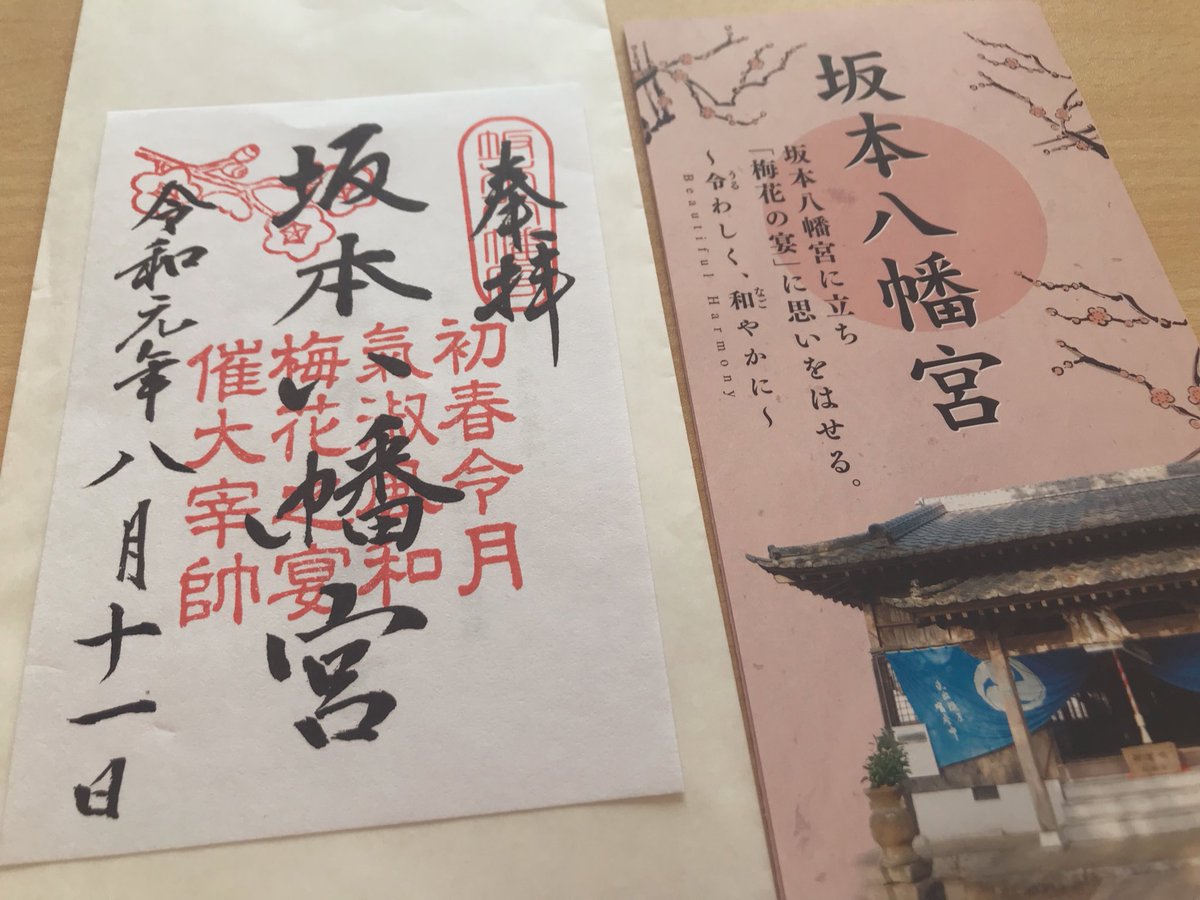 奉拝
坂本八幡宮
初春令月
氣淑風和
梅花之宴
催大宰帥
令和元年八月十一日
坂本八幡宮
坂本八幡宮に立ち
「梅花の宴」に思いをはせる。
~令わしく、和やかに~
うる
なご
Beautiful Harmony